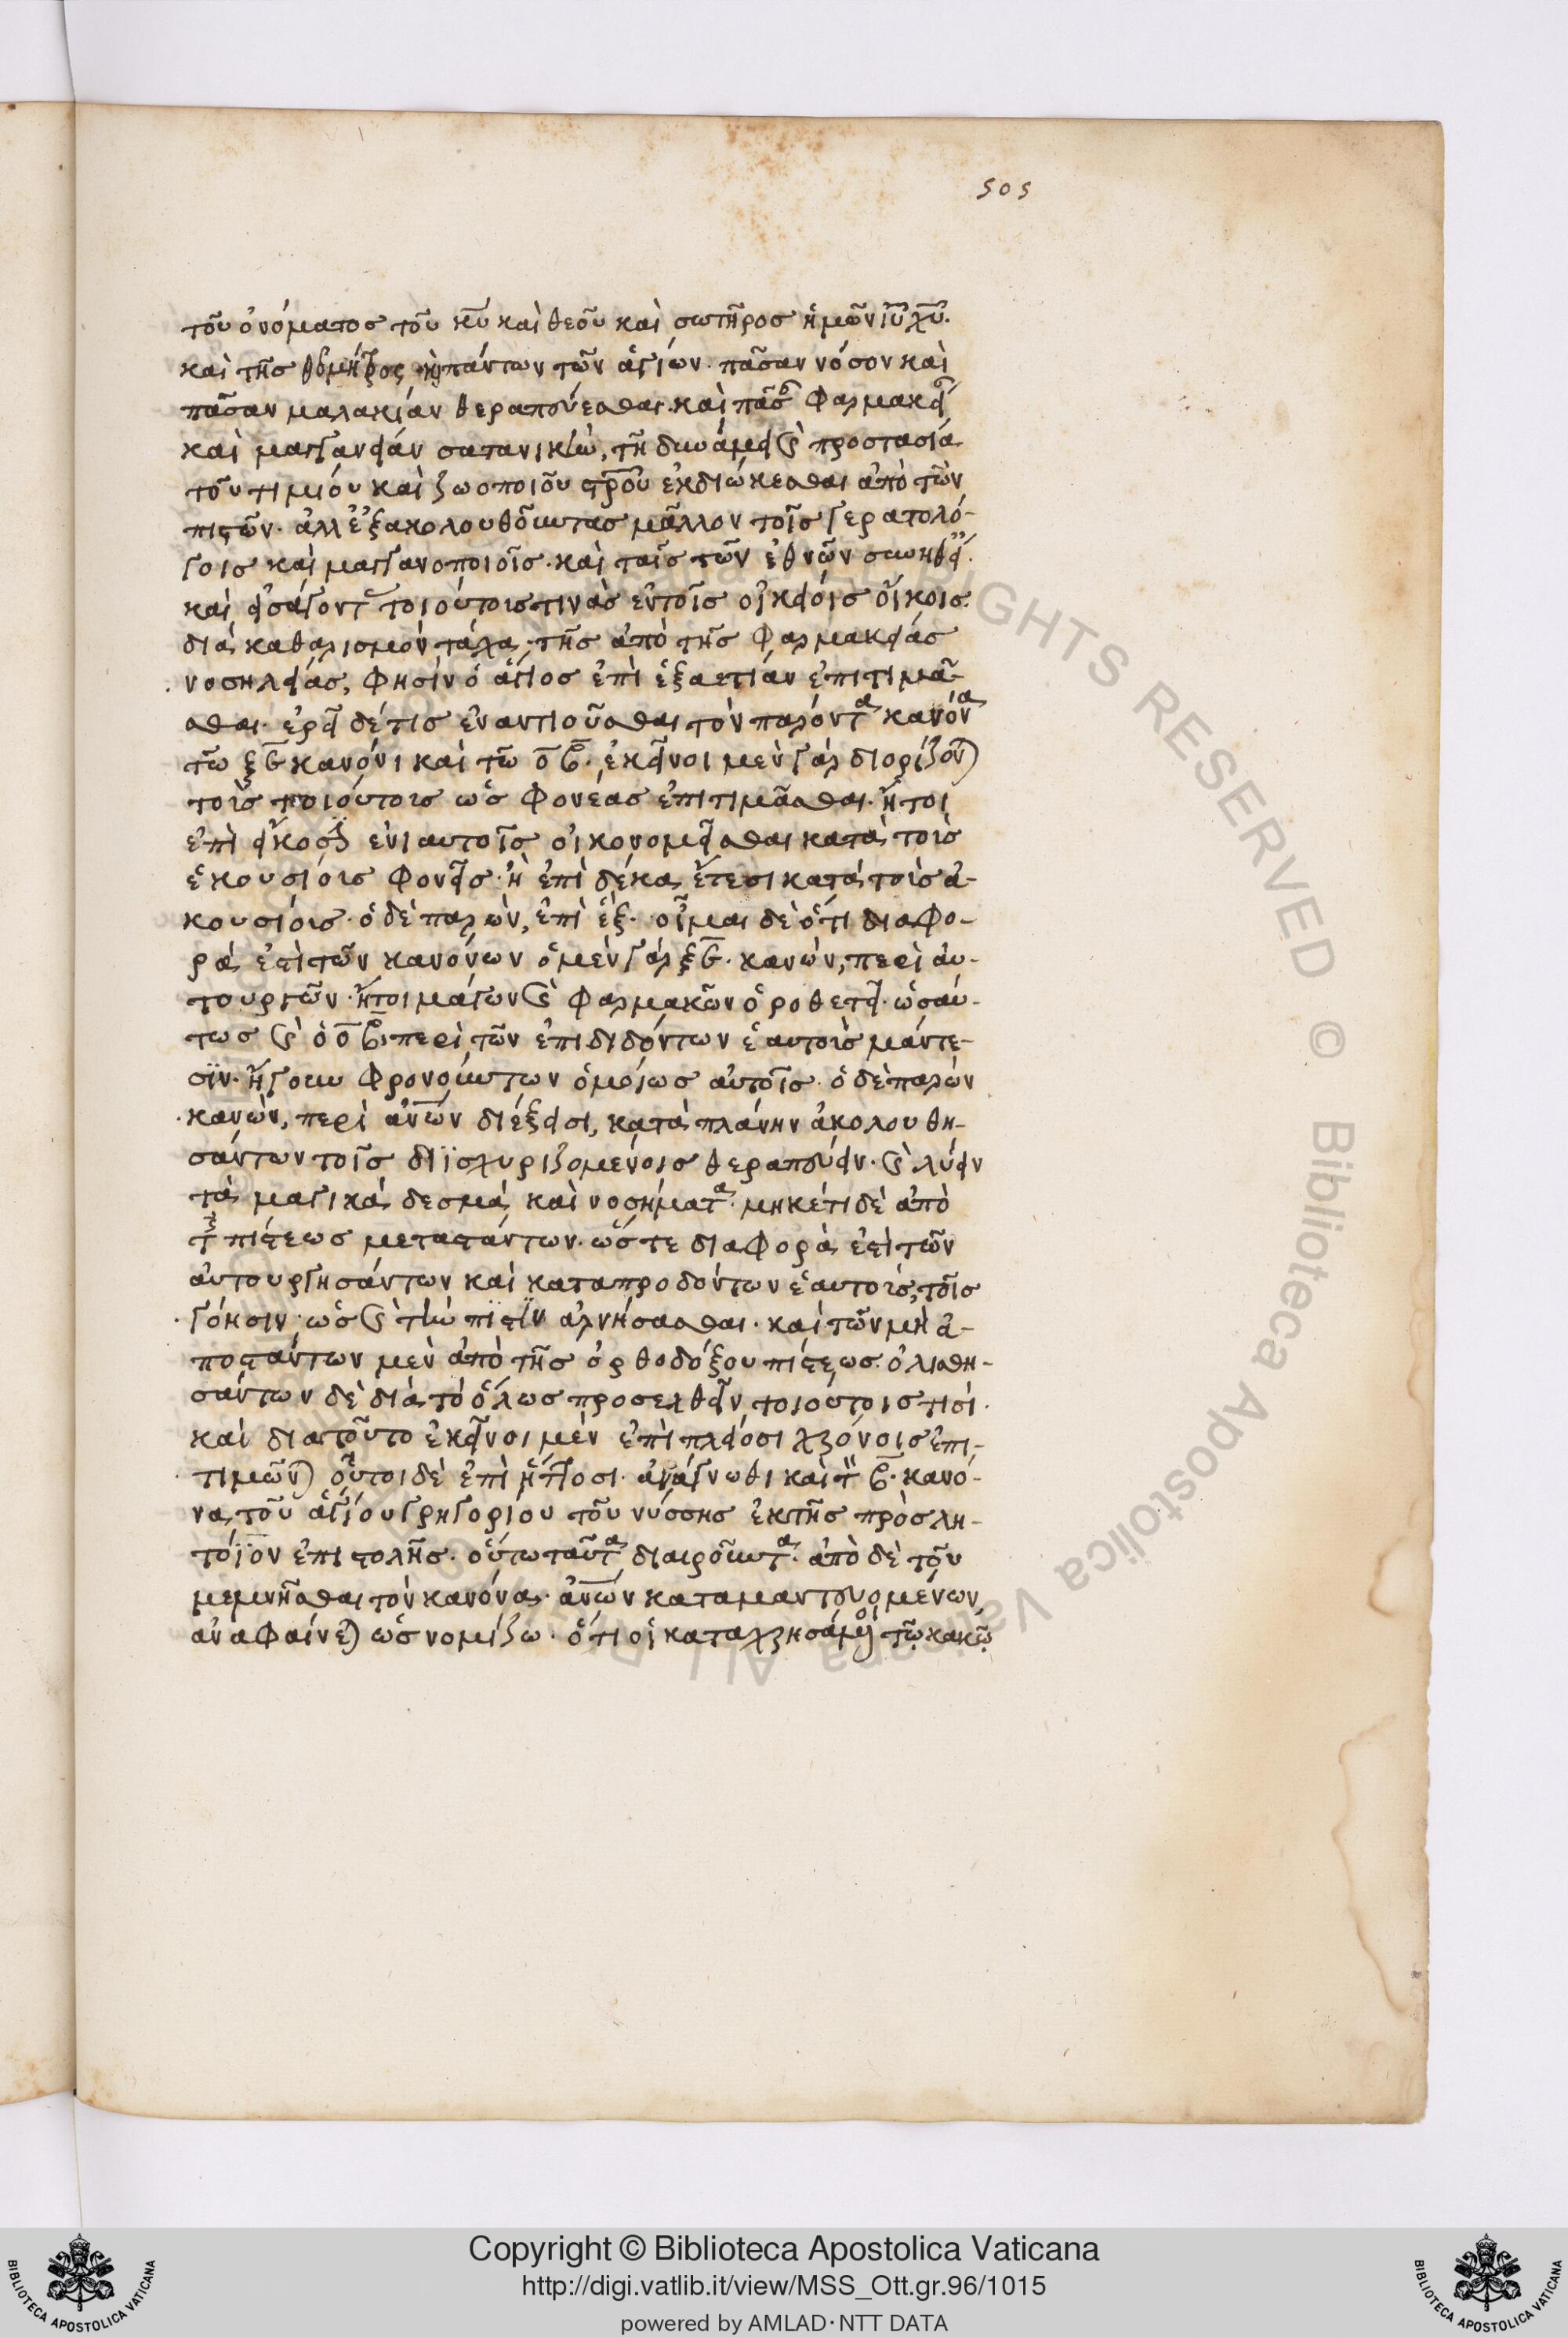 505
τοῦ ὀνόματος τοῦ κ̅υ̅ καὶ θεοῦ καὶ σωτῆρος ἡμῶν ι̅υ̅ χ̅υ̅.
καὶ τῆς θ̅ο̅μήτρος καὶ πάντων τῶν ἁγίων. πᾶσαν νόσον καὶ
πᾶσαν μαλακίαν θεραπεύεσθαι. καὶ πᾶσαν φαρμακεί
καὶ μαγγανείαν σατανικὴν, τῆ δυνάμει καὶ προστασία
τοῦ τιμίου καὶ ζωοποιοῦ σ̅ρ̅ο̅ῦ ἐκδιώκεσθαι ἀπὸ τῶν
πιστῶν. ἀλλ ἐξακολουθοῦντας μᾶλλον τοῖς τερατολό-
γοις καὶ μαγγανοποιοῖς. καὶ ταῖς τῶν ἐθνῶν συνηθεί.
καὶ εἰσάγοντ τοιούτοις τινὰς ἐν τοῖς οἰκείοις οἴκοις.
διὰ καθαρισμὸν τάχα, τῆς ἀπὸ τῆς φαρμακείας
νοσηλείας, φησὶν ὁ ἅγιος ἐπὶ ἑξαετίαν ἐπιτιμᾶ-
σθαι. ἐρεῖ δέ τις ἐναντιοῦσθαι τὸν παρόντα κανόνα
τῶ ξ̅ε̅ κανόνι καὶ τῶ ο̅β̅. ἐκεῖνοι μὲν γὰρ διορίζονται
τοῖς τοιούτοις ὡς φονέας ἐπιτιμᾶσθαι. ἤτοι
ἐπὶ εἴκοσι ἐνιαυτοῖς οἰκονομεῖσθαι κατὰ τοὺς
ἑκουσίοις φονεῖς. ἢ ἐπὶ δέκα ἔτεσι κατὰ τοὺς ἀ-
κουσίοις. ὁ δὲ παρὼν, ἐπὶ ἕξ. οἶμαι δὲ ὅτι διαφο-
ρά ἐστι τῶν κανόνων ὁ μὲν γὰρ ξ̅ε̅. κανών, περὶ αὐ-
τουργῶν. ἤτοι μάγων καὶ φαρμακῶν ὁροθετεῖ. ὡσαύ-
τως καὶ ὁ ο̅β̅. περὶ τῶν ἐπιδιδόντων ἑαυτοὺς μάντε-
σϊν. ἤγουν φρονούντων ὁμοίως αὐτοῖς. ὁ δὲ παρών
κανὼν, περὶ ἀ̅ν̅ῶν διέξεισι, κατὰ πλάνην ἀκολουθη-
σάντων τοῖς διϊσχυριζομένοις θεραπεύειν. καὶ λύειν
τὰ μαγικὰ δεσμὰ καὶ νοσήματα. μηκέτι δὲ ἀπὸ
τῆς πίστεως μεταστάντων. ὥστε διαφορὰ ἐστὶ τῶν
αὐτουργησάντων καὶ καταπροδόντων ἑαυτοὺς, τοῖς
γόησιν. ὡς καὶ τὴν πίστϊν ἀρνήσασθαι. καὶ τῶν μὴ ἀ-
ποστάντων μὲν ἀπὸ τῆς ὀρθοδόξου πίστεως. ὀλισθη-
σάντων δὲ διὰ τὸ ὅλως προσελθεῖν τοιούτοις τισί.
καὶ διατοῦτο ἐκεῖνοι μὲν ἐπὶ πλείοσι χρόνοις ἐπι-
τιμῶνται οὗτοι δὲ ἐπὶ ἥττοσι. ἀνάγνωθι καὶ τὸν β̅. κανό-
να τοῦ ἁγίου γρηγορίου τοῦ νύσσης ἐκ τῆς πρὸς λη-
τόϊον ἐπιστολῆς. οὕτω ταῦτα διαιροῦντα. ἀπὸ δὲ τοῦ
μεμνῆσθαι τὸν κανόνα. ἀ̅ν̅ῶν καταμαντευομένων,
ἀναφαίνεται ὡς νομίζω. ὅτι οἱ καταχρησάμενοι τῷ κακῷ
Copyright © Biblioteca Apostolica Vaticana
http://digi.vatlib.it/view/MSS_Ott.gr.96/1015
powered by AMLAD·NTT DATA